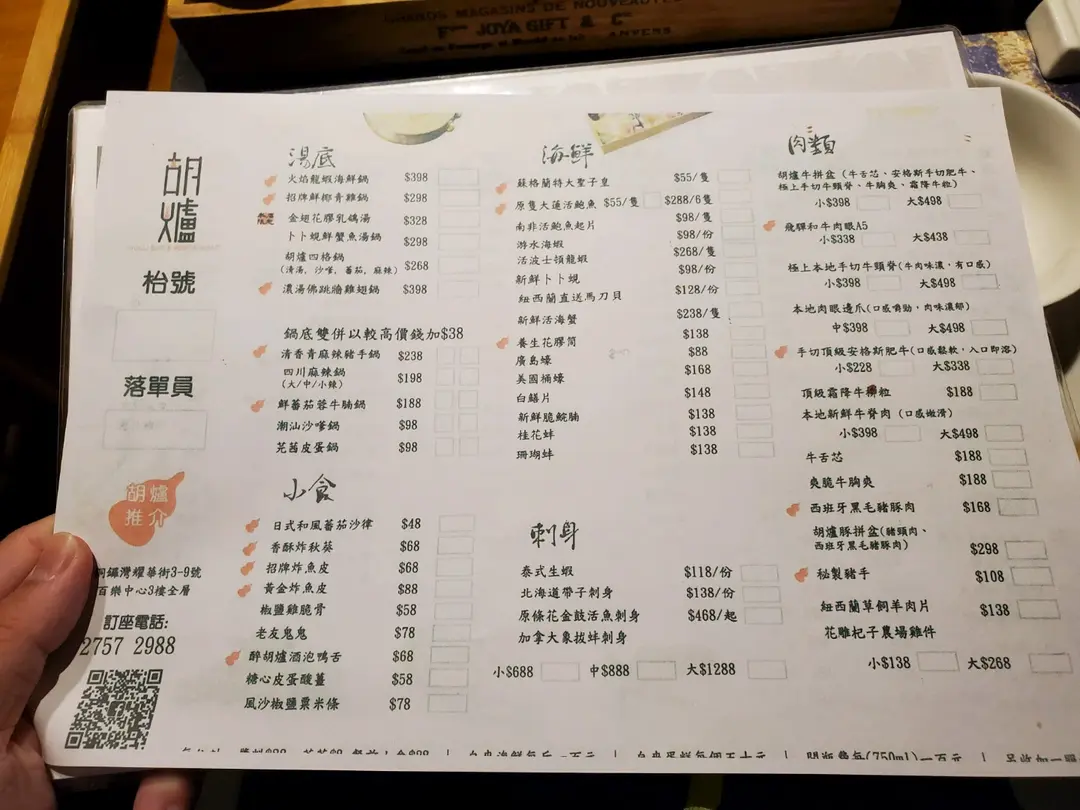 JOYA GIFT & Cº
ANVERS
胡
爐
枱號
落單員
胡爐
推介
銅鑼灣耀華街3-9號
百樂中心3樓全層
訂座電話:
2757 2988
湯底
火焰龍蝦海鮮鍋 $398
招牌鮮椰青雞鍋 $298
金翅花膠乳鴿湯 $328
卜卜蜆鮮蟹魚湯鍋 $298
胡爐四格鍋
(清湯, 沙嗲, 蕃茄, 麻辣) $268
濃湯佛跳牆雞翅鍋 $398
鍋底雙併以較高價錢加$38
清香青麻辣豬手鍋 $238
四川麻辣鍋
(大/中/小辣) $198
鮮蕃茄蓉牛腩鍋 $188
潮汕沙嗲鍋 $98
芫茜皮蛋鍋 $98
小食
日式和風蕃茄沙律 $48
香酥炸秋葵 $68
招牌炸魚皮 $68
黃金炸魚皮 $88
椒鹽雞脆骨 $58
老友鬼鬼 $78
醉胡爐酒泡鴨舌 $68
糖心皮蛋酸薑 $58
風沙椒鹽粟米條 $78
海鮮
蘇格蘭特大聖子皇 $55/隻
原隻大蓮活鮑魚 $55/隻 $288/6隻
南非活鮑魚起片 $98/隻
游水海蝦 $98/份
活波士頓龍蝦 $268/隻
新鮮卜卜蜆 $98/份
紐西蘭直送馬刀貝 $128/份
新鮮活海蟹 $238/隻
養生花膠筒 $138
廣島蠔 $88
美國桶蠔 $168
白鱔片 $148
新鮮脆鯇腩 $138
桂花蚌 $138
珊瑚蚌 $138
刺身
泰式生蝦 $118/份
北海道帶子刺身 $138/份
原條花金鼓活魚刺身 $468/起
加拿大象拔蚌刺身
小$688 中$888 大$1288
肉類
胡爐牛拼盆(牛舌芯、安格斯手切肥牛、
極上手切牛頸脊、牛胸爽、霜降牛粒)
小$398 大$498
飛驒和牛肉眼A5
小$338 大$438
極上本地手切牛頸脊(牛肉味濃,有口感)
小$398 大$498
本地肉眼邊爪(口感嚼勁,肉味濃郁)
中$398 大$498
手切頂級安格斯肥牛(口感鬆軟,入口即溶)
小$228 大$338
頂級霜降牛粒 $188
本地新鮮牛脊肉(口感嫩滑)
小$398 大$498
牛舌芯 $188
爽脆牛胸爽 $188
西班牙黑毛豬豚肉 $168
胡爐豚拼盆(豬頸肉、
西班牙黑毛豬豚肉) $298
秘製豬手 $108
紐西蘭草飼羊肉片 $138
花雕杞子農場雞件
小$138 大$268
自來海鮮每斤一百元 | 自來蛋糕每個五十元 | 開瓶費每(750ml)一百元